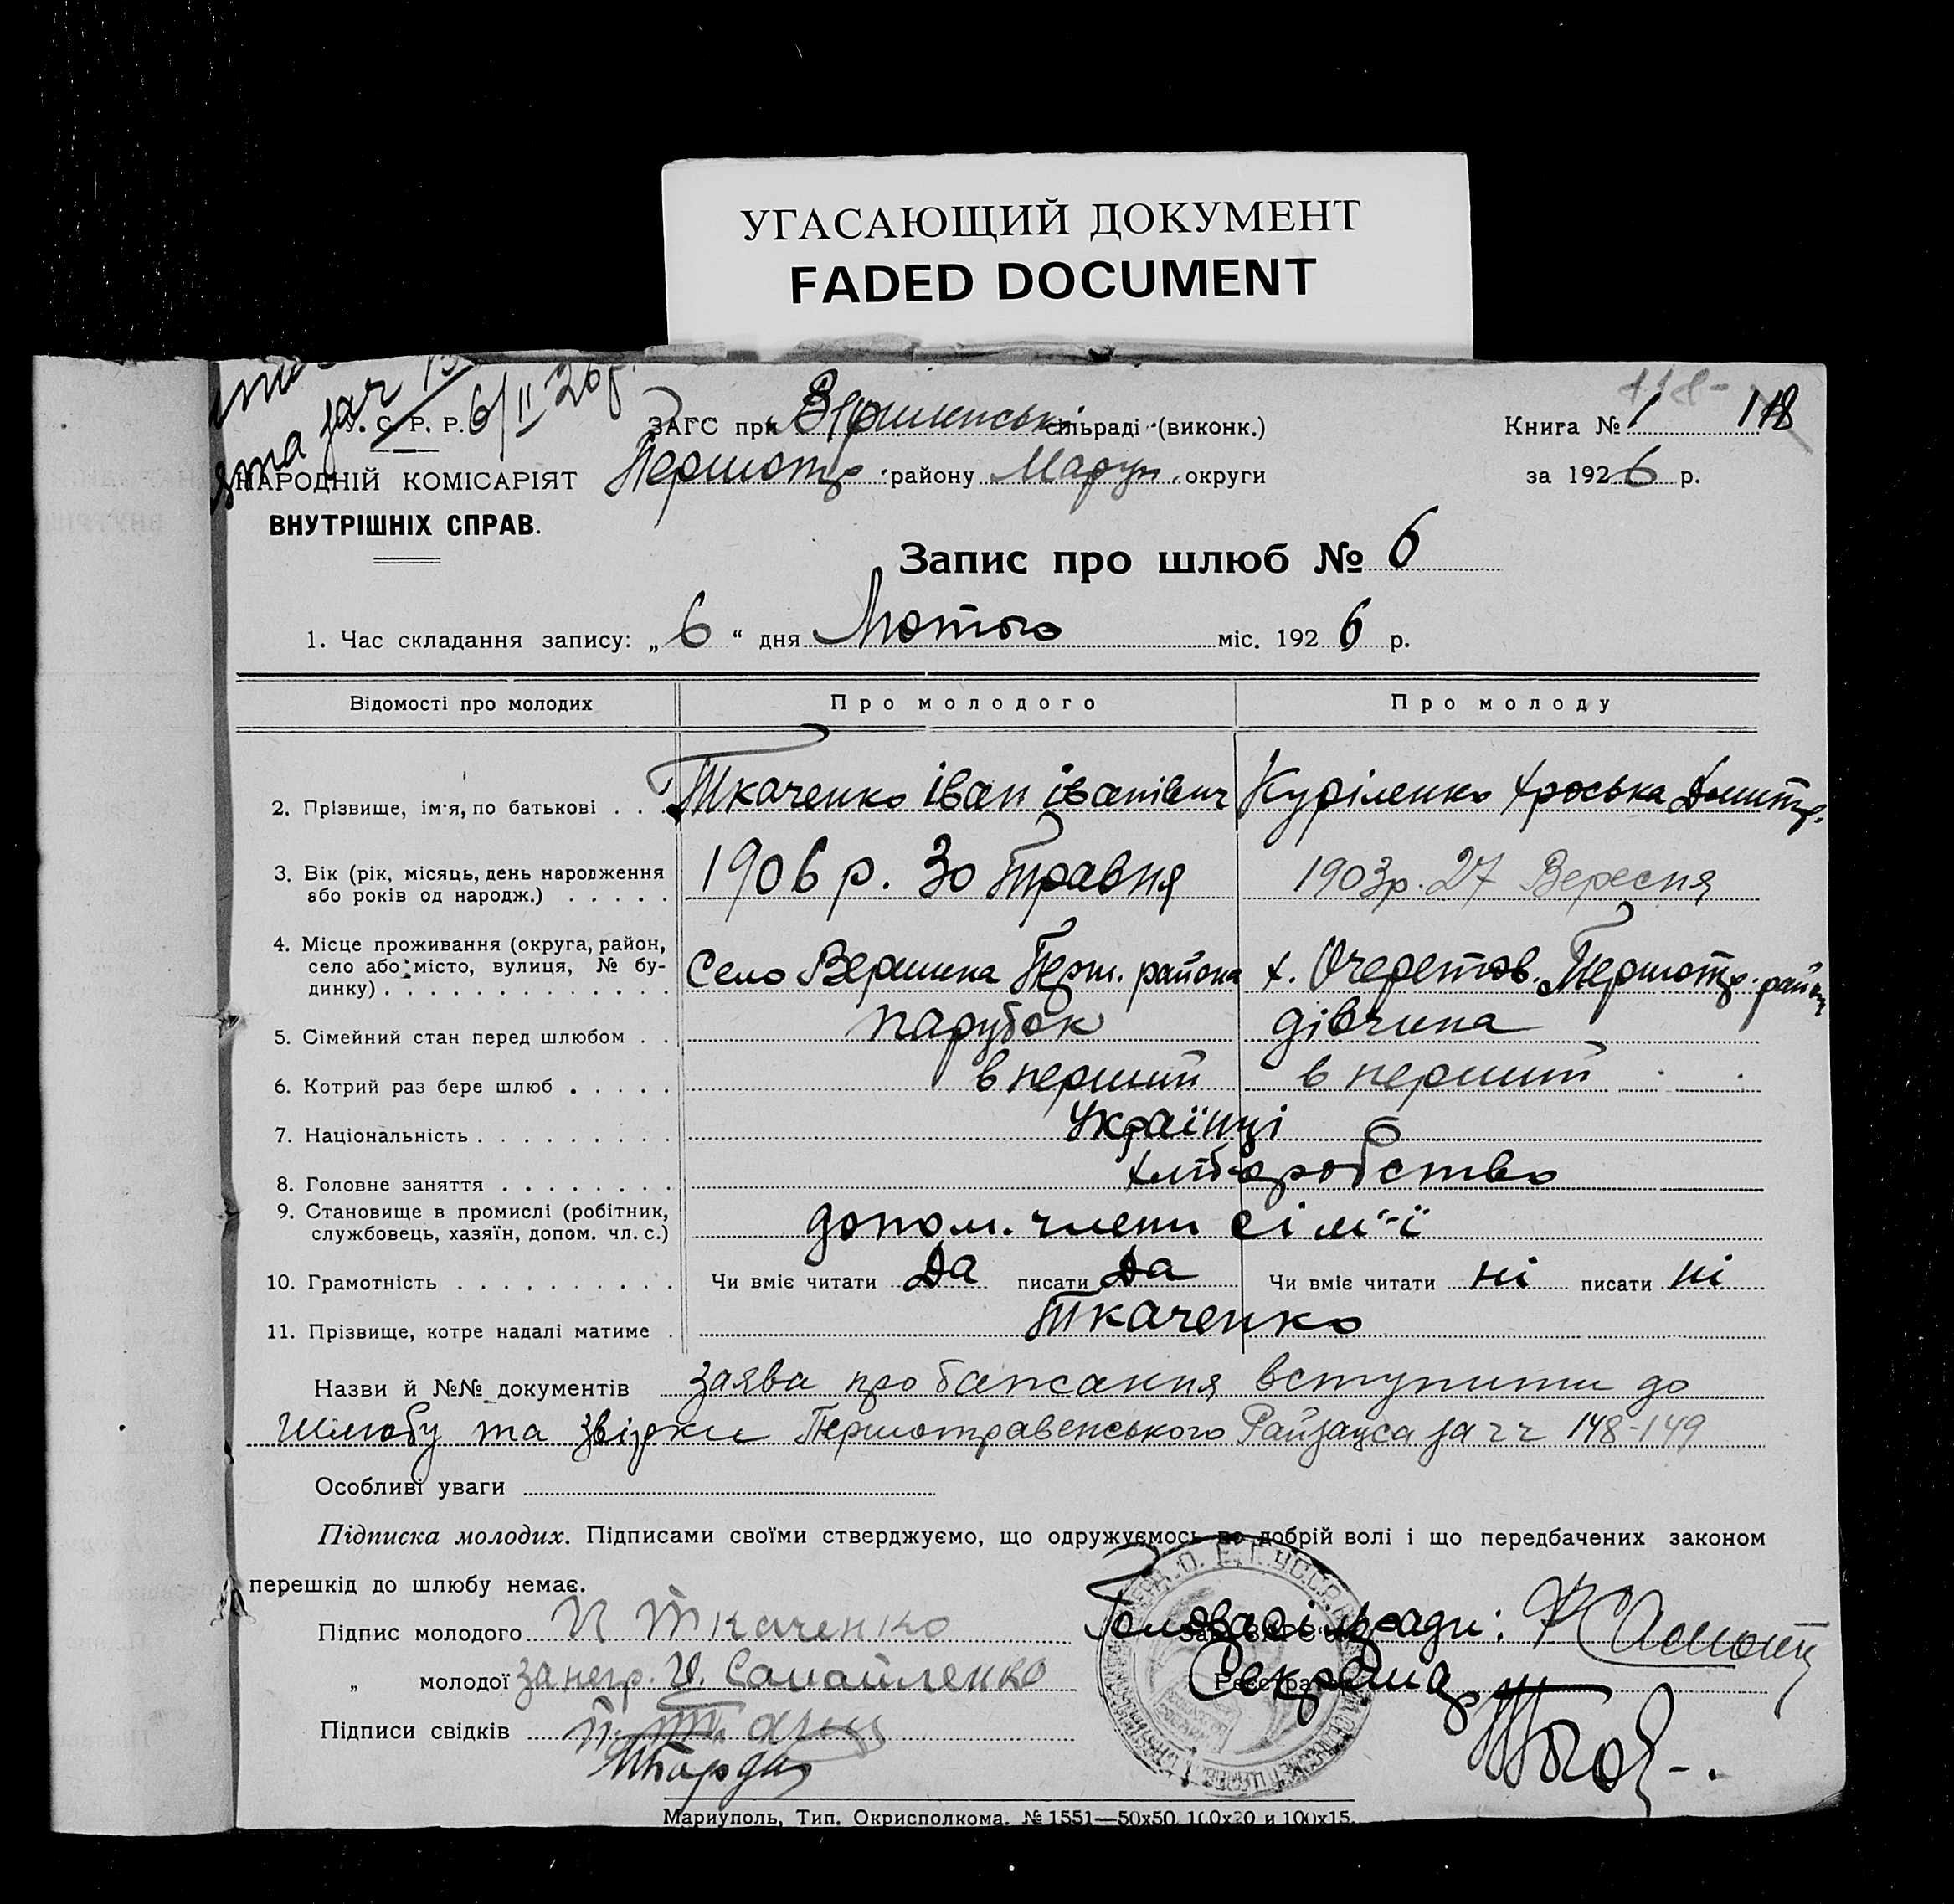 УГАСАЮЩИЙ ДОКУМЕНТ
FADED DOCUMENT
118-
У. С. Р. Р. 6/II 26 р.
ЗАГС при Вершиненські сільраді (виконк.)
Книга № 1 118
НАРОДНІЙ КОМІСАРІЯТ
Першотр району Маруп. округи
за 1926 р.
ВНУТРІШНІХ СПРАВ.
Запис про шлюб № 6
1. Час складання запису: „ 6 “ дня Лютого міс. 1926 р.
Відомості про молодих Про молодого Про молоду
2. Прізвище, ім'я, по батькові . . . Ткаченко Іван Іванівич Куріленко Хроська Дмитр.
3. Вік (рік, місяць, день народження
або років од народж.) . . . . . 1906 р. 30 Травня 1903 р. 27 Вересня
4. Місце проживання (округа, район,
село або місто, вулиця, № бу-
динку) . . . . . . . . . . . . . Село Вершина Перш. района х. Очеретов. Першотр. район
5. Сімейний стан перед шлюбом . . парубок дівчина
6. Котрий раз бере шлюб . . . . . в перший в перший
7. Національність . . . . . . . . . Українці
8. Головне заняття . . . . . . . . хліборобство
9. Становище в промислі (робітник,
службовець, хазяїн, допом. чл. с.) допом. члени сім'ї
10. Грамотність . . . . . . . . . . Чи вміє читати Да писати Да Чи вміє читати ні писати ні
11. Прізвище, котре надалі матиме . Ткаченко
Назви й №№ документів заява про бажання вступити до
Шлюбу та звірки Першотравенського Райзагса за чч 148-149
Особливі уваги
Підписка молодих. Підписами своїми стверджуємо, що одружуємось по добрій волі і що передбачених законом
перешкід до шлюбу немає.
Підпис молодого И Ткаченко
Голова сільради:
„ молодої за негр. И. Самойленко
Секретар
Підписи свідків
Мариуполь, Тип. Окрисполкома. № 1551—50х50, 100х20 и 100х15.